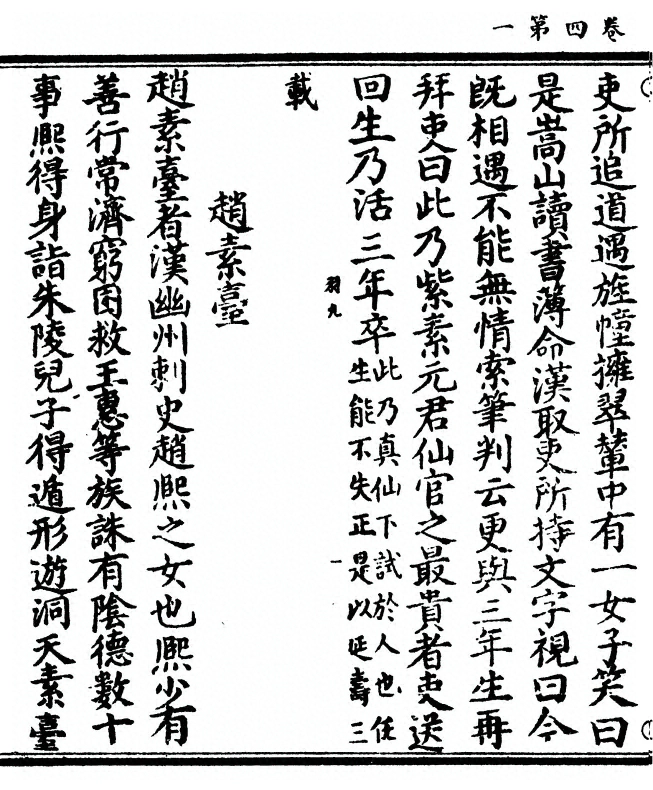 卷四第一
吏所追道遇旌幢擁翠輦中有一女子笑曰
是嵩山讀書薄命漢取吏所持文字視曰今
旣相遇不能無情索筆判云更與三年生再
拜吏曰此乃紫素元君仙官之最貴者吏送
回生乃活三年卒此乃真仙下試於人也任
生能不失正是以延壽三
羽九
載
趙素臺
趙素臺者漢幽州刺史趙熙之女也熙少有
善行常濟窮困救王惠等族誅有陰德數十
事熙得身詣朱陵兒子得遁形遊洞天素臺